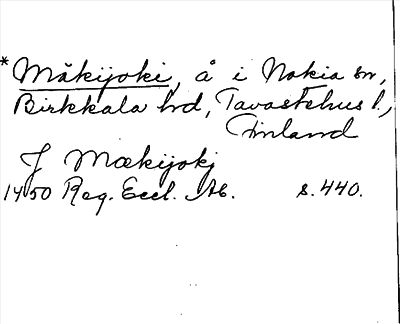 *Mäkijoki, å i Nokia sn,
Birkkala hd, Tavastehus l.,
Finland
J Mækijokj
1450 Reg. Eccl. Ab. s. 440.